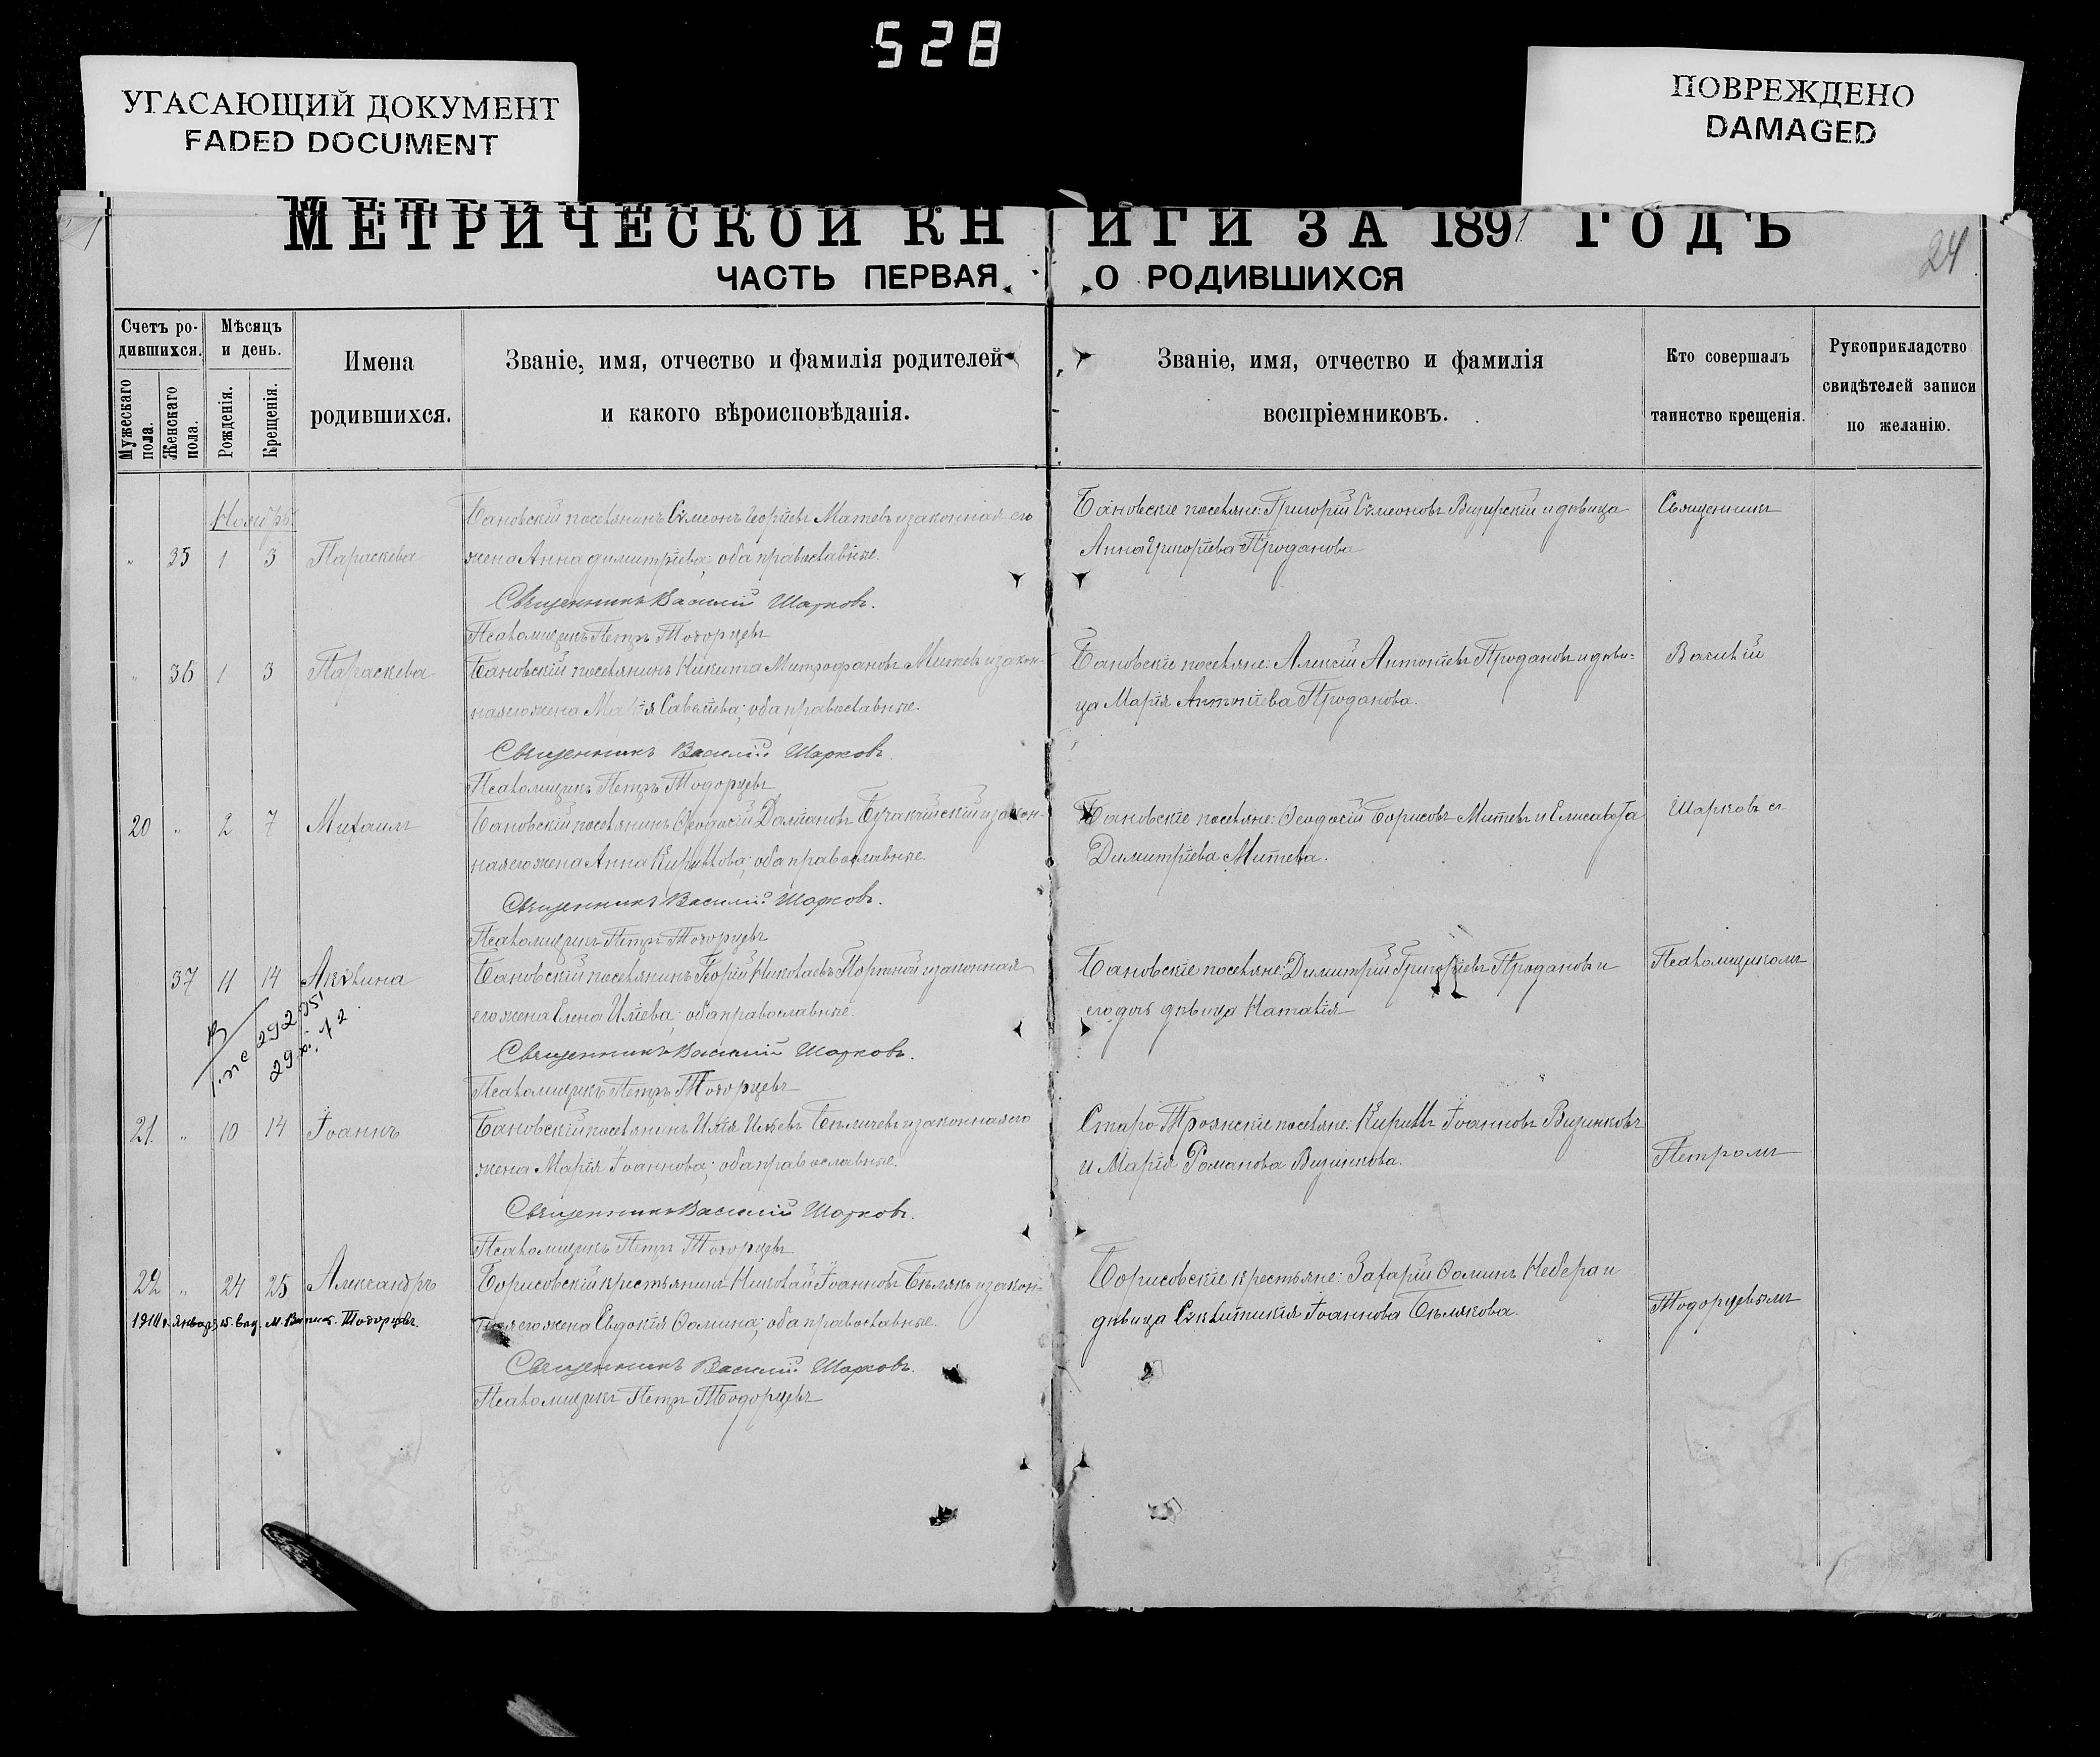 528
УГАСАЮЩИЙ ДОКУМЕНТ
FADED DOCUMENT
ПОВРЕЖДЕНО
DAMAGED
МЕТРИЧЕСКОЙ КНИГИ ЗА 1891 ГОДЪ
24
ЧАСТЬ ПЕРВАЯ О РОДИВШИХСЯ
Счетъ ро-
дившихся.
Мужескаго пола.
Женскаго пола.
Мѣсяцъ
и день.
Рожденія.
Крещенія.
Имена
родившихся.
Званіе, имя, отчество и фамилія родителей
и какого вѣроисповѣданія.
Званіе, имя, отчество и фамилія
воспріемниковъ.
Кто совершалъ
таинство крещенія.
Рукоприкладство
свидѣтелей записи
по желанію.
Ноябрь
Бановскій поселянинъ Сѵмеонъ Георгіевъ Матевъ и законная его
Бановскіе поселяне: Григорій Сѵмеоновъ Визирскій и дѣвица
Священникъ
" 35 1 3 Параскева
жена Анна Димитріева; оба православные.
Анна Григоріева Проданова
Священникъ Василій Шарковъ.
Псаломщикъ Петръ Тодорцевъ
" 36 1 3 Параскева
Бановскій поселянинъ Никита Митрофановъ Митевъ и закон-
Бановскіе поселяне: Алексій Антоніевъ Продановъ и дѣви-
Василій
ная его жена Марія Савелиева; оба православные.
ца Марія Антоніева Проданова.
Священникъ Василій Шарковъ.
Псаломщикъ Петръ Тодорцевъ
20 " 2 7 Михаилъ
Бановскій поселянинъ Ѳеодосій Даміановъ и закон-
Бановскіе поселяне: Ѳеодосій Борисовъ Митевъ и Елисавета
Шарковъ съ
ная его жена Анна Кириллова; оба православные.
Димитріева Митева.
Священникъ Василій Шарковъ.
Псаломщикъ Петръ Тодорцевъ
37 11 14 Акѵлина
Бановскій поселянинъ Георгій Николаевъ Портной и законная
Бановскіе поселяне: Димитрій Григоріевъ Продановъ и
Псаломщикомъ
его жена Елена Иліева; оба православные.
его дочь дѣвица Наталія
Священникъ Василій Шарковъ.
Псаломщикъ Петръ Тодорцевъ
21. " 10 14 Іоаннъ
Бановскій поселянинъ Илія Ильевъ Бѣличевъ и законная его
Старо-Троянскіе поселяне: Кириллъ Іоанновъ Визинковъ
жена Марія Іоаннова; оба православные.
и Марія Романова Визинкова.
Петромъ
Священникъ Василій Шарковъ.
Псаломщикъ Петръ Тодорцевъ
22 " 24 25 Александръ
Борисовскій крестьянинъ Николай Іоанновъ Бѣлякъ и закон-
Борисовскіе крестьяне: Захарій Ѳоминъ Небера и
ная его жена Евдокія Ѳомина; оба православные.
дѣвица Сѵнклитикія Іоаннова Бѣлякова.
Тодорцевымъ
Священникъ Василій Шарковъ.
Псаломщикъ Петръ Тодорцевъ